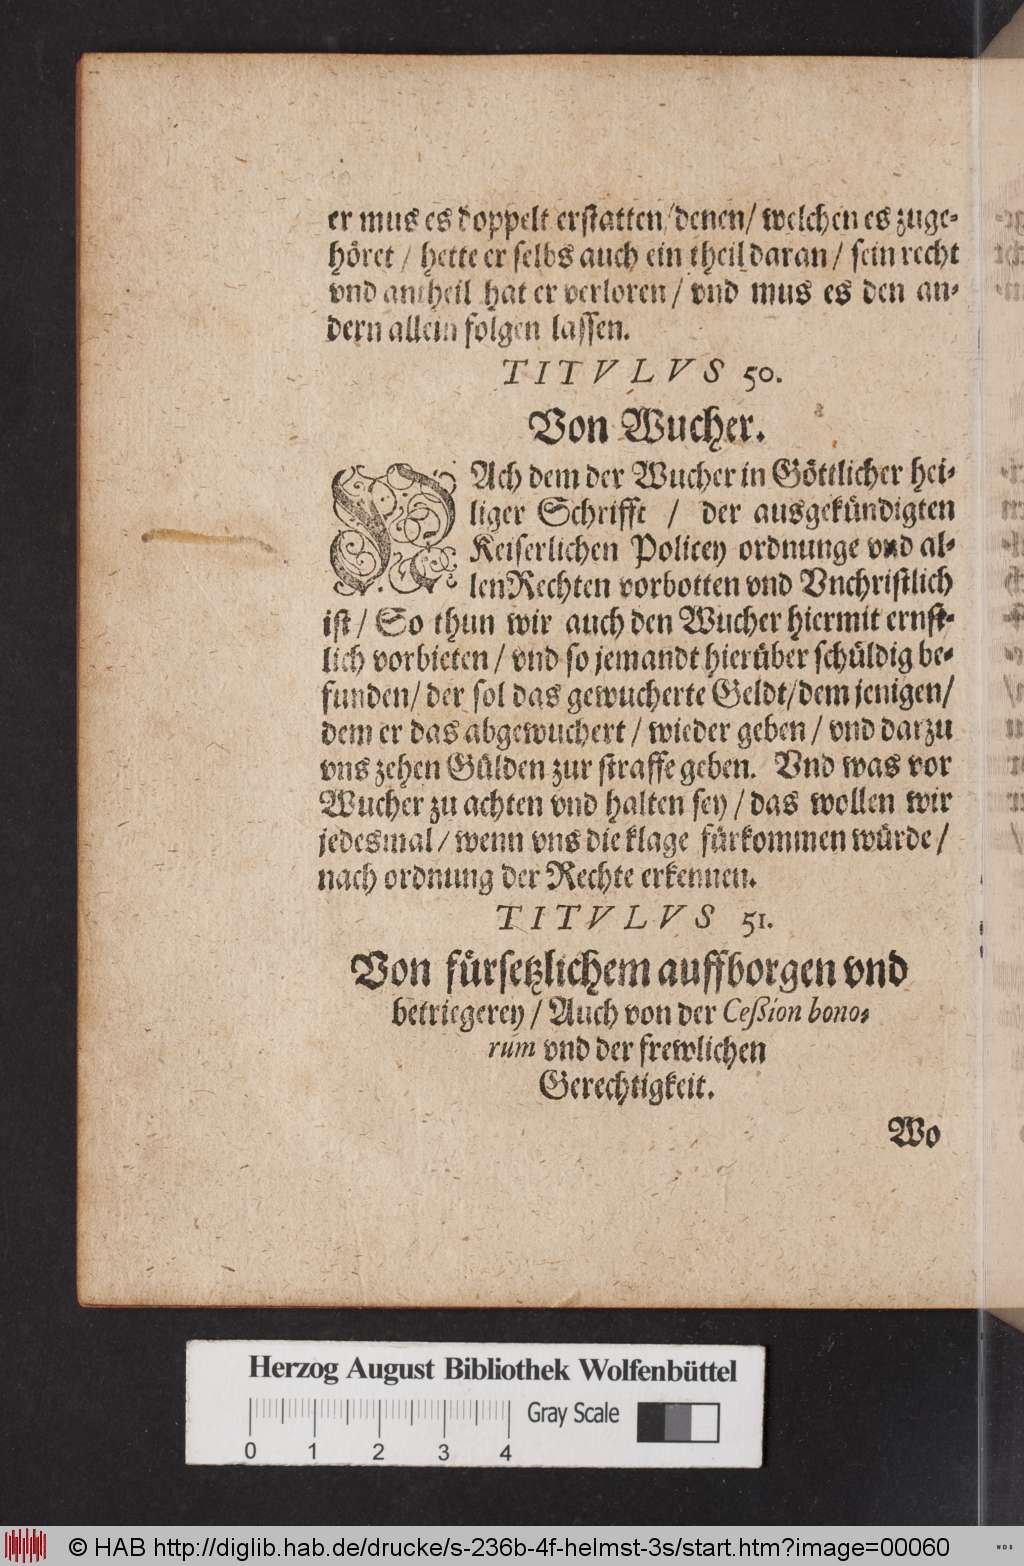 er mus es doppelt erstatten/denen/ welchen es zuge-
höret / hette er selbs auch ein theil daran / sein recht
vnd antheil hat er verloren / vnd mus es den an-
dern allein folgen lassen.
TITVLVS 50.
Von Wucher.
NAch dem der Wucher in Göttlicher hei-
liger Schrifft / der ausgekündigten
Keiserlichen Policey ordnunge vnd al-
lenRechten vorbotten vnd Vnchristlich
ist / So thun wir auch den Wucher hiermit ernst-
lich vorbieten / vnd so jemandt hierüber schüldig be-
funden/ der sol das gewucherte Geldt/dem jenigen/
dem er das abgewuchert / wieder geben / vnd darzu
vns zehen Gülden zur straffe geben. Vnd was vor
Wucher zu achten vnd halten sey / das wollen wir
jedesmal / wenn vns die klage fürkommen würde /
nach ordnung der Rechte erkennen.
TITVLVS 51.
Von fürsetzlichem auffborgen vnd
betriegerey / Auch von der Ceßion bono-
rum vnd der frewlichen
Gerechtigkeit.
Wo
Herzog August Bibliothek Wolfenbüttel
Gray Scale
0 1 2 3 4
© HAB http://diglib.hab.de/drucke/s-236b-4f-helmst-3s/start.htm?image=00060